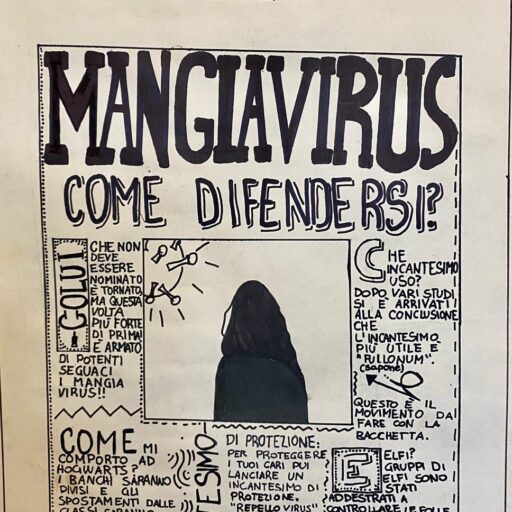 MANGIAVIRUS
COME DIFENDERSI?
COLUI
CHE NON
DEVE
ESSERE
NOMINATO
È TORNATO,
MA QUESTA
VOLTA
PIÙ FORTE
DI PRIMA
E ARMATO
DI POTENTI
SEGUACI
I MANGIA
VIRUS!!
CHE
INCANTESIMO
USO?
DOPO VARI STUDI
SI È ARRIVATI
ALLA CONCLUSIONE
CHE
L'INCANTESIMO
PIÙ UTILE E
"RULLONUM".
(sapone)
QUESTO È IL
MOVIMENTO DA
FARE CON LA
BACCHETTA.
COME MI
COMPORTO AD
HOGWARTS?
I BANCHI SARANNO
DIVISI E GLI
SPOSTAMENTI DALLE
CLASSI SARANNO
TESIMO
DI PROTEZIONE:
PER PROTEGGERE
I TUOI CARI PUI
LANCIARE UN
INCANTESIMO DI
PROTEZIONE.
"REPELLO VIRUS"
E ELFI?
GRUPPI DI
ELFI SONO
STATI
ADDESTRATI A
CONTROLLARE LE FOLLE